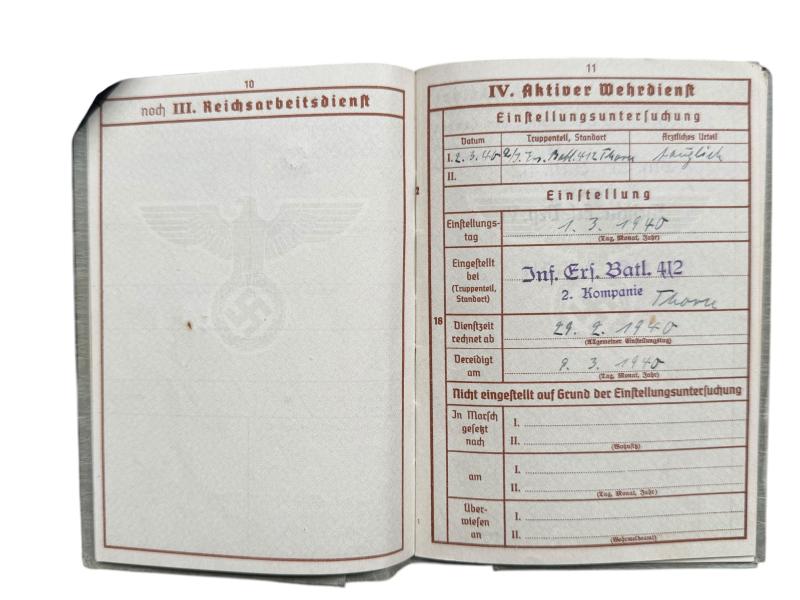 10
noch III. Reichsarbeitsdienst
11
IV. Aktiver Wehrdienst
Einstellungsuntersuchung
Datum Truppenteil, Standort Ärztliches Urteil
I. 2. 3. 40 2/J. Ers. Batl. 412 Thorn tauglich
II.
Einstellung
Einstellungs-
tag
1. 3. 1940
(Tag, Monat, Jahr)
Eingestellt
bei
(Truppenteil,
Standort)
Inf. Ers. Batl. 412
2. Kompanie Thorn
18
Dienstzeit
rechnet ab
29. 2. 1940
(Allgemeiner Einstellungstag)
Vereidigt
am
9. 3. 1940
(Tag, Monat, Jahr)
Nicht eingestellt auf Grund der Einstellungsuntersuchung
In Marsch
gesetzt
nach
I.
II.
(Wohnsitz)
am
I.
II.
(Tag, Monat, Jahr)
Über-
wiesen
an
I.
II.
(Wehrmeldeamt)